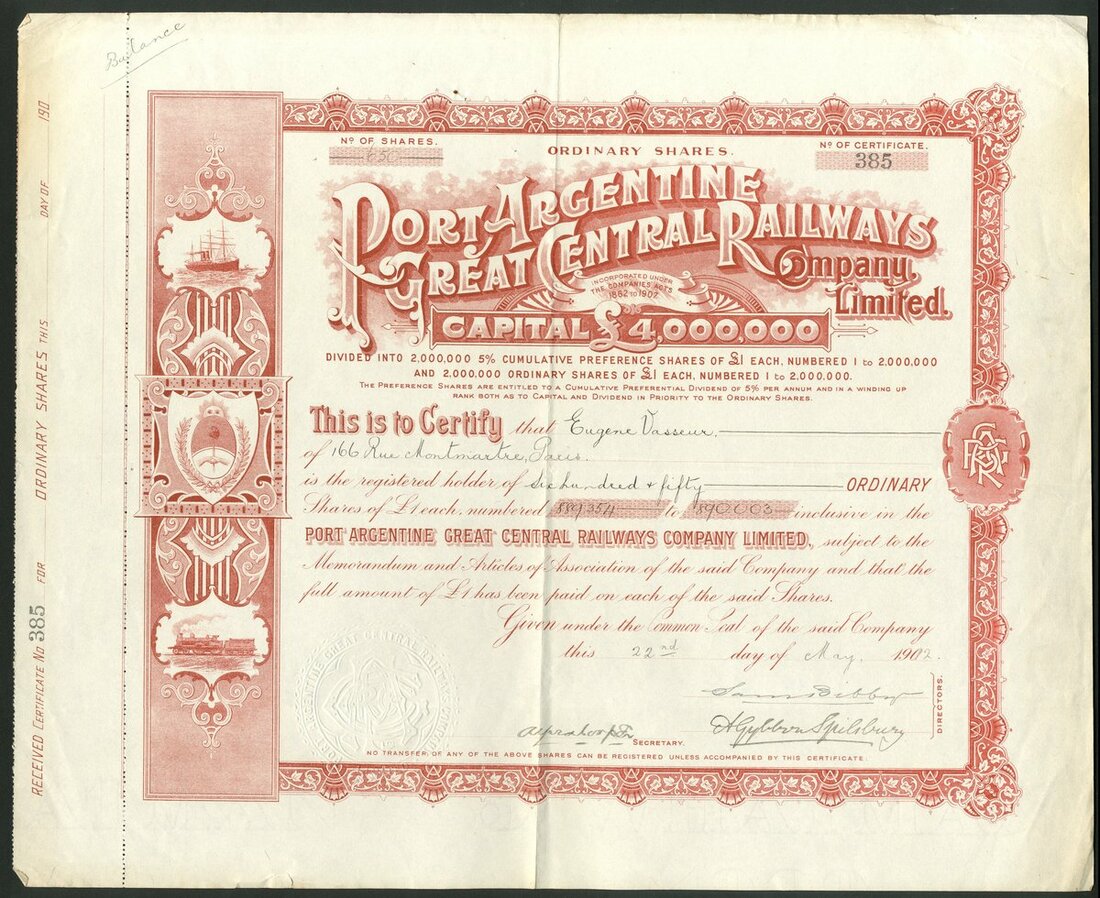 Balance
Nº OF SHARES.
650
ORDINARY SHARES.
Nº OF CERTIFICATE.
385
PORT ARGENTINE
GREAT CENTRAL RAILWAYS
Company,
Limited.
INCORPORATED UNDER
THE COMPANIES ACTS
1862 TO 1902
CAPITAL £4,000,000
DIVIDED INTO 2,000,000 5% CUMULATIVE PREFERENCE SHARES OF £1 EACH, NUMBERED 1 to 2,000,000
AND 2,000,000 ORDINARY SHARES OF £1 EACH, NUMBERED 1 to 2,000,000.
THE PREFERENCE SHARES ARE ENTITLED TO A CUMULATIVE PREFERENTIAL DIVIDEND OF 5% PER ANNUM AND IN A WINDING UP
RANK BOTH AS TO CAPITAL AND DIVIDEND IN PRIORITY TO THE ORDINARY SHARES.
This is to Certify that Eugene Vasseur,
of 166 Rue Montmartre, Paris.
is the registered holder of six hundred & fifty ORDINARY
Shares of £1 each, numbered 589354 to 590003 inclusive in the
PORT ARGENTINE GREAT CENTRAL RAILWAYS COMPANY LIMITED, subject to the
Memorandum and Articles of Association of the said Company and that the
full amount of £1 has been paid on each of the said Shares.
Given under the Common Seal of the said Company
this 22nd day of May, 1902.
Sam Bibby
A Gybbon Spilsbury
DIRECTORS.
SECRETARY.
NO TRANSFER OF ANY OF THE ABOVE SHARES CAN BE REGISTERED UNLESS ACCOMPANIED BY THIS CERTIFICATE.
RECEIVED CERTIFICATE No 385 FOR ORDINARY SHARES THIS DAY OF 190